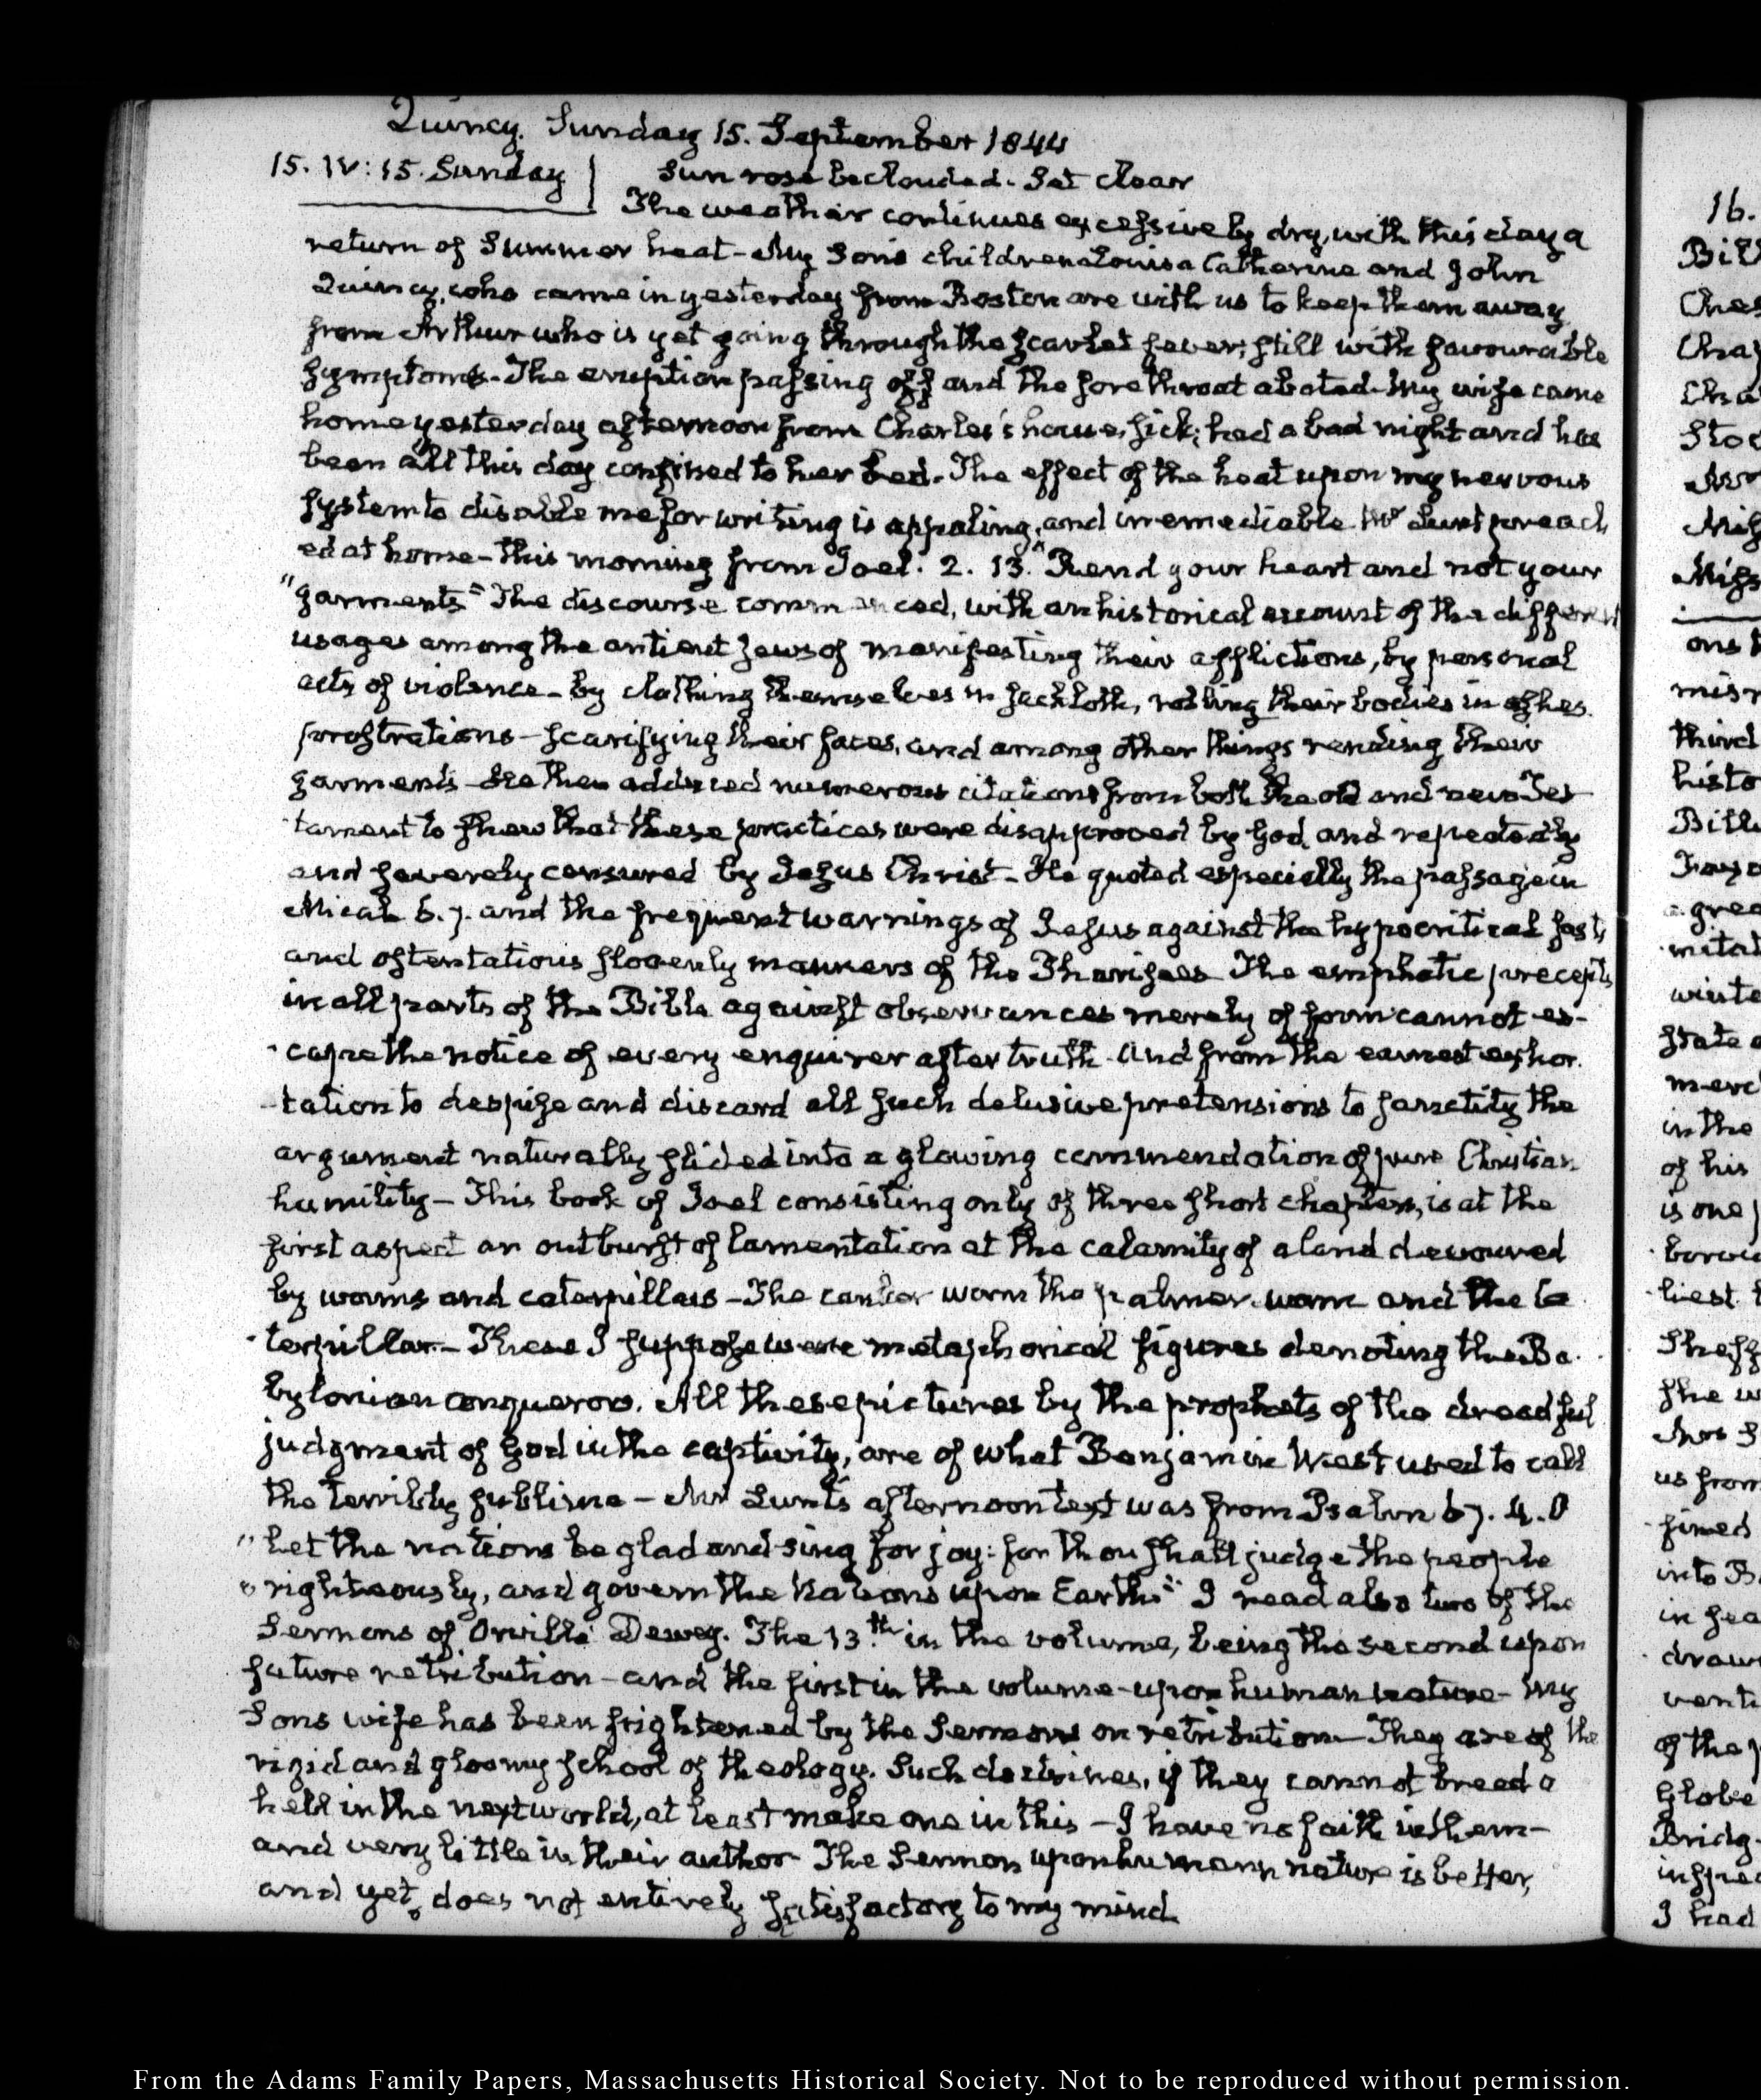 Quincy. Sunday 15. September 1844
15. IV: 15. Sunday | Sun rose beclouded. Set clear
The weather continues excessively dry, with this day a
return of Summer heat - My Sons children Louisa Catherine and John
Quincy, who came in yesterday from Boston are with us to keep them away
from Arthur who is yet going through the scarlet fever; still with favourable
symptoms - The eruption passing off and the sore throat abated - My wife came
home yesterday afternoon from Charles's house, sick; had a bad night and has
been all this day confined to her bed. The effect of the heat upon my nervous
system to disable me for writing is appaling, and irremediable Mr Lunt preach
ed at home - this morning from Joel. 2. 13. "Rend your heart and not your
"garments" The discourse commenced, with an historical account of the different
usages among the antient Jews of manifesting their afflictions, by personal
acts of violence - by clothing themselves in sackcloth, rolling their bodies in ashes.
prostrations - scarifying their faces, and among other things rending their
garments - He then adduced numerous citations from both the old and new Tes-
tament to shew that these practices were disapproved by God, and repeatedly
and severely censured by Jesus Christ - He quoted especially the passage in
Micah 6. 7. and the frequent warnings of Jesus against the hypocritical fasts
and ostentatious slovenly manners of the Pharisees The emphatic precepts
in all parts of the Bible against observances merely of form cannot es-
cape the notice of every enquirer after truth. And from the earnest exhor.
-tation to despise and discard all such delusive pretensions to sanctity the
argument naturally glided into a glowing commendation of pure Christian
humility - This book of Joel consisting only of three short chapters, is at the
first aspect an outburst of lamentation at the calamity of a land devoured
by worms and caterpillars - The canker worm the palmer worm and the ca
terpillar - These I suppose were metaphorical figures denoting the Ba.
bylonian conquerors. All these pictures by the prophets of the dreadful
judgment of God in the captivity, are of what Benjamin West used to call
the terribly sublime - Mr Lunt's afternoon text was from Psalm 67. 4. O
"Let the nations be glad and sing for joy: for thou shalt judge the people
"righteously, and govern the Nations upon Earth" I read also two of the
Sermons of Orville Dewey. The 13.th in the volume, being the second upon
future retribution - and the first in the volume - upon human nature - My
Sons wife has been frightened by the Sermons on retribution - They are of the
rigid and gloomy school of theology. Such doctrines, if they cannot breed a
hell in the next world, at least make one in this - I have no faith in them -
and very little in their author - The Sermon upon human nature is better,
and yet does not entirely satisfactory to my mind
16.
Bill
mis
third
histo
state
in the
of his
is one
liest
she w
us from
into B
in
of the
Globe
I had
From the Adams Family Papers, Massachusetts Historical Society. Not to be reproduced without permission.